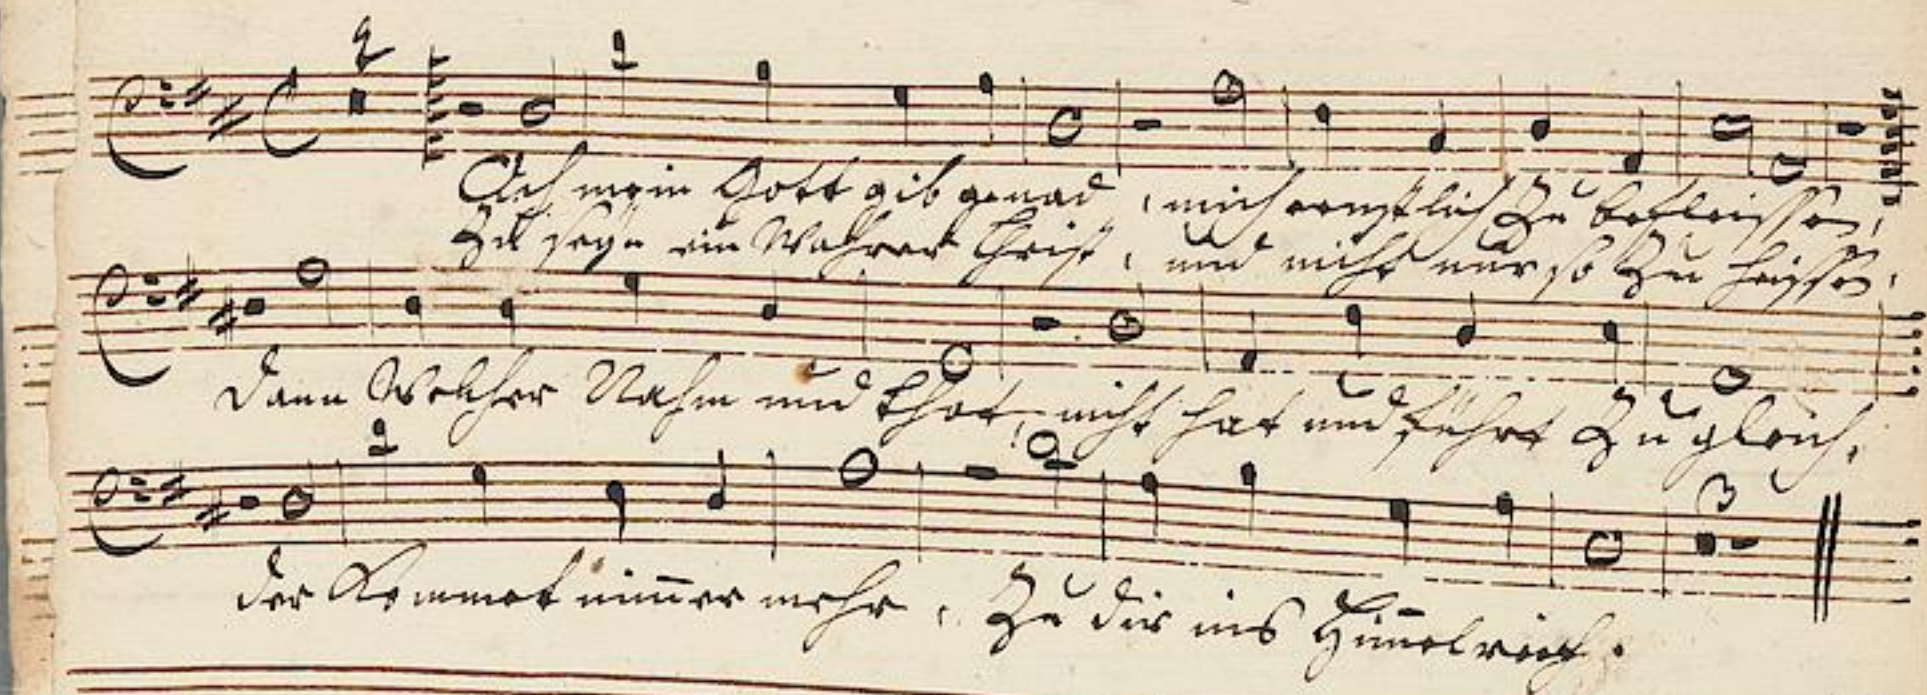 2
Ach mein Gott gib genad, mich ernstlich Zu befleissen,
Zu seyn ein Wahrer Christ, und nicht nur so Zu heissen,
Dann Welcher Nahm und that, nicht hat und führt Zu gleich,
der Kommet nim̄er mehr, Zu dir ins Him̄elreich.
3